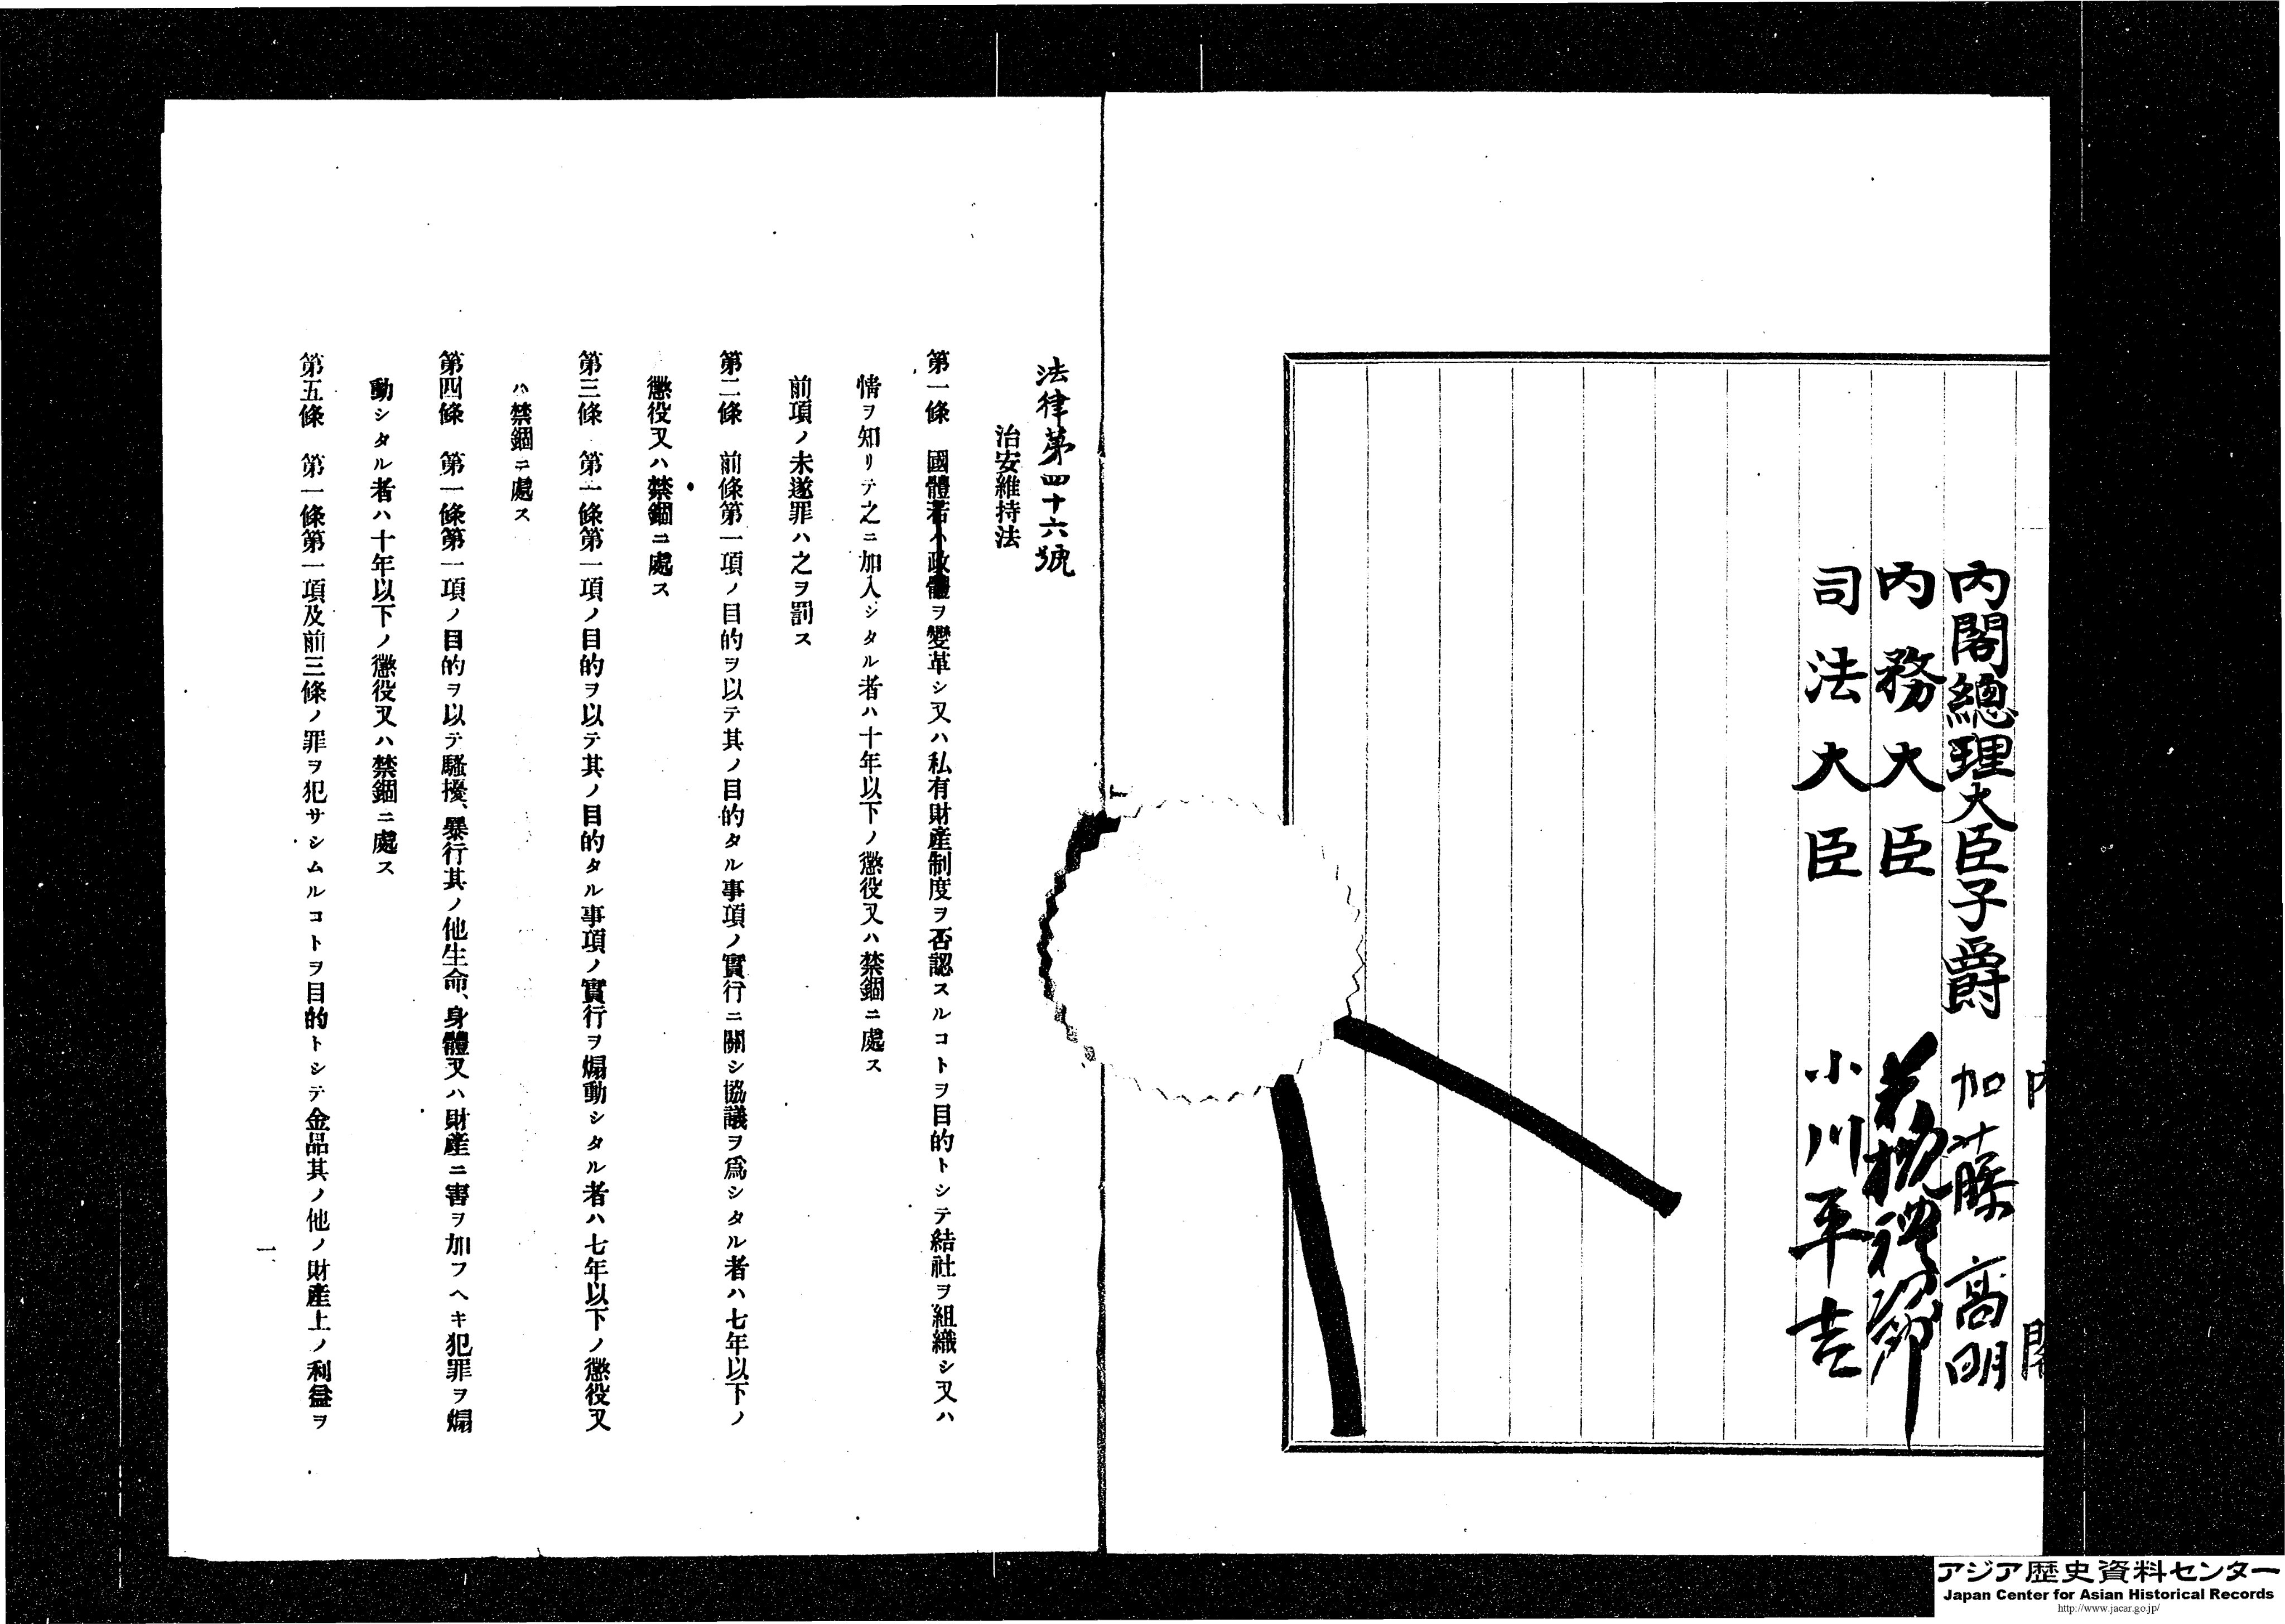 內閣
內閣總理大臣子爵 加藤高明
內務大臣 若槻禮次郎
司法大臣 小川平吉
法律第四十六號
治安維持法
第一條 國體若ハ政體ヲ變革シ又ハ私有財產制度ヲ否認スルコトヲ目的トシテ結社ヲ組織シ又ハ
情ヲ知リテ之ニ加入シタル者ハ十年以下ノ懲役又ハ禁錮ニ處ス
前項ノ未遂罪ハ之ヲ罰ス
第二條 前條第一項ノ目的ヲ以テ其ノ目的タル事項ノ實行ニ關シ協議ヲ爲シタル者ハ七年以下ノ
懲役又ハ禁錮ニ處ス
第三條 第一條第一項ノ目的ヲ以テ其ノ目的タル事項ノ實行ヲ煽動シタル者ハ七年以下ノ懲役又
ハ禁錮ニ處ス
第四條 第一條第一項ノ目的ヲ以テ騷擾、暴行其ノ他生命、身體又ハ財產ニ害ヲ加フヘキ犯罪ヲ煽
動シタル者ハ十年以下ノ懲役又ハ禁錮ニ處ス
第五條 第一條第一項及前三條ノ罪ヲ犯サシムルコトヲ目的トシテ金品其ノ他ノ財產上ノ利益ヲ
一、
アジア歴史資料センター
Japan Center for Asian Historical Records
http://www.jacar.go.jp/